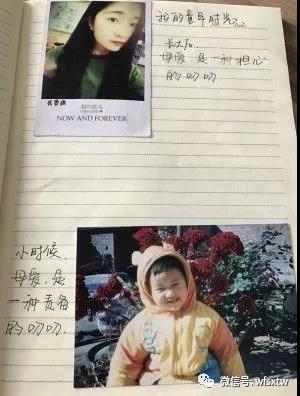 我的童年时光
长大后
母爱是一种担心
的叨叨
NOW AND FOREVER
小时候
母爱是
一种责备
的叨叨
微信号: wfsxtw